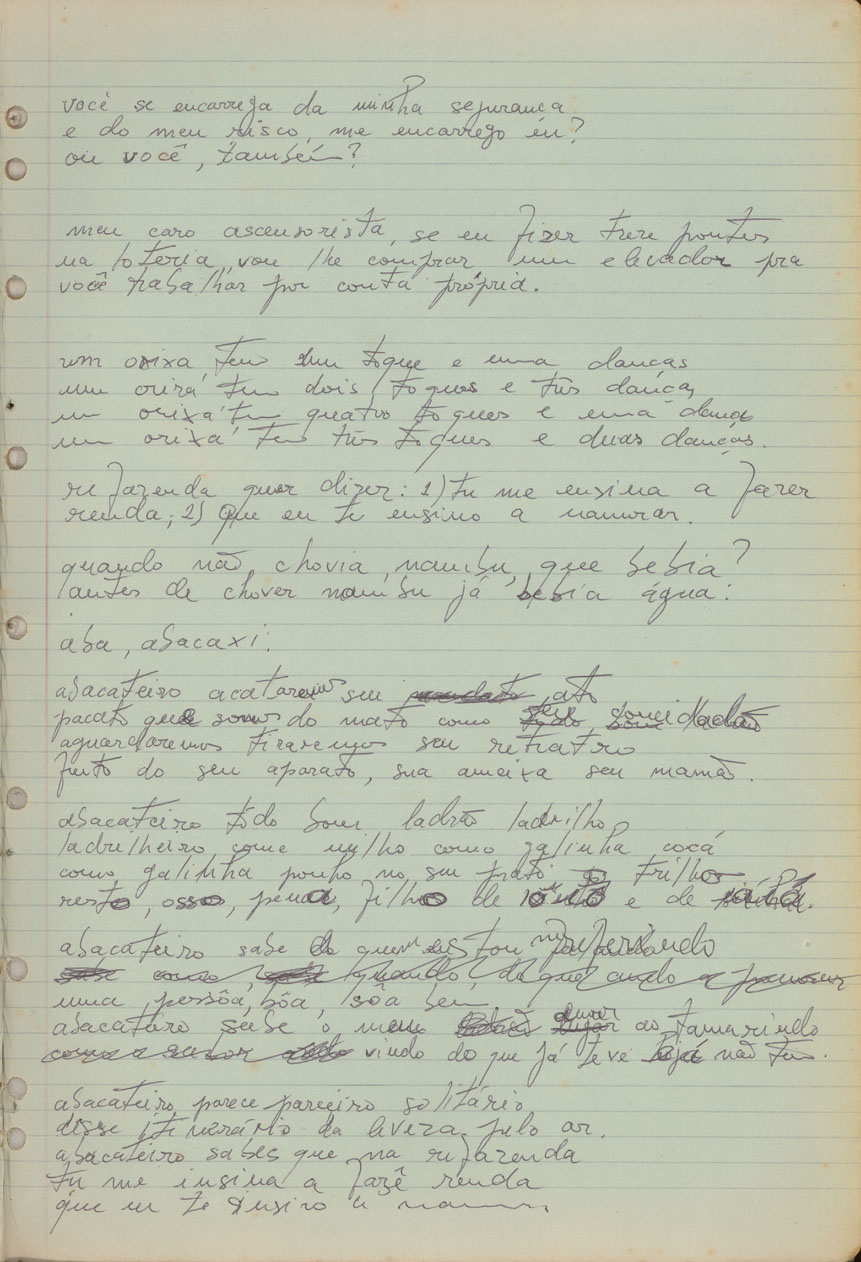 você se encarrega da minha segurança
e do meu risco, me encarrego eu?
ou você, também?
meu caro ascensorista, se eu fizer treze pontos
na loteria, vou lhe comprar um elevador pra
você trabalhar por conta própria.
um orixa tem um toque e uma danças
um orixá tem dois toques e três danças
um orixá tem quatro toques e uma dança
um orixá tem três toques e duas danças.
refazenda quer dizer: 1) tu me ensina a fazer
renda; 2) Que eu te ensino a namorar.
quando não chovia, nambu, que bebia?
antes de chover nambu já bebia água:
aba, abacaxi.
abacateiro acataremos seu ato
pacato que somos do mato como
aguardaremos tiraremos seu retratro
junto do seu aparato, sua ameixa seu mamão.
abacateiro todo bom ladrão ladrilho
ladrilheiro come milho como galinha cocá
como galinha ponho no seu prato o trilho
resto, osso, pena, filho de e de iáiá.
abacateiro sabe de quem estou me referindo
como, quando, de que
uma pessôa, bôa, sôa bem.
abacateiro sabe o meu amor ao tamarindo
como o sabor vindo do que já teve hoje não tem.
abacateiro parece parceiro solitário
disse itinerário da leveza pelo ar.
abacateiro sabes que na refazenda
tu me insina a fazê renda
que eu te insino a